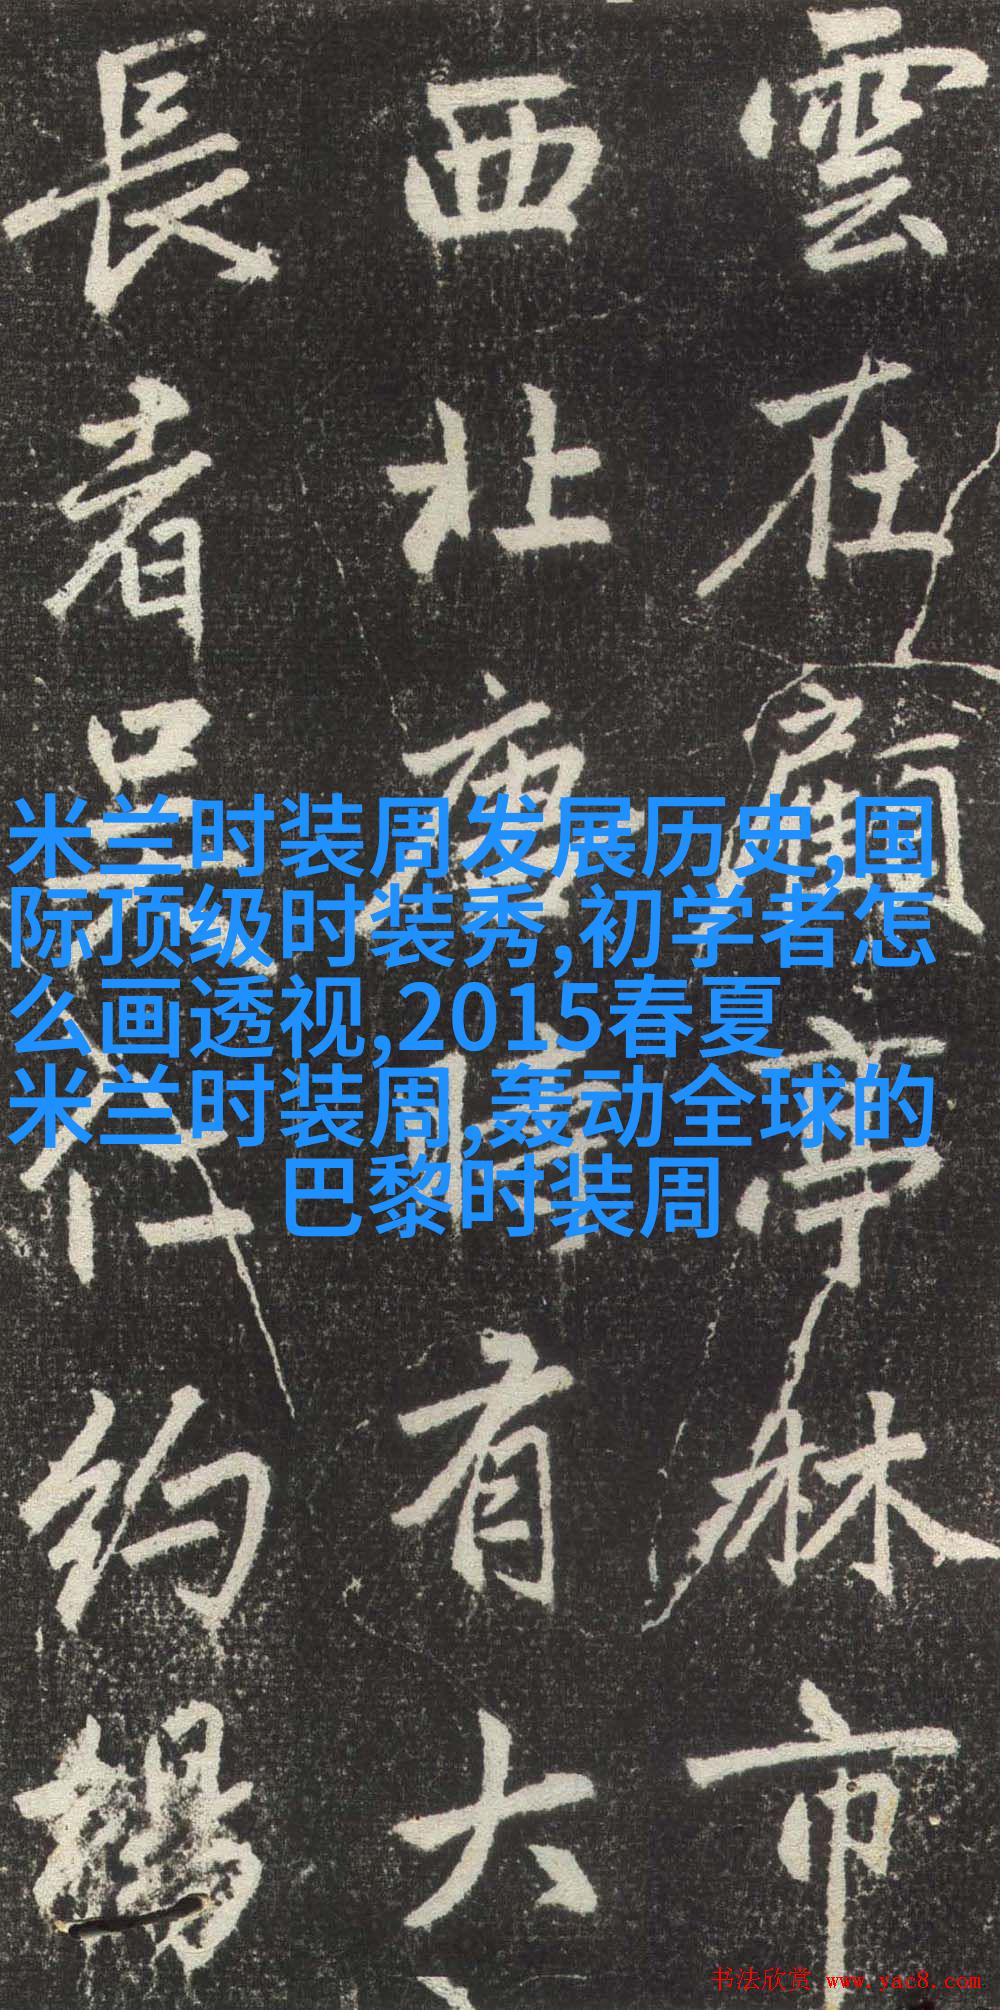 雲在顧亭林市
西北有大
長者吳約楊
米兰时装周发展历史,国
际顶级时装秀,初学者怎
么画透视,2015春夏
米兰时装周,轰动全球的
巴黎时装周
书法欣赏 www.yac8.com